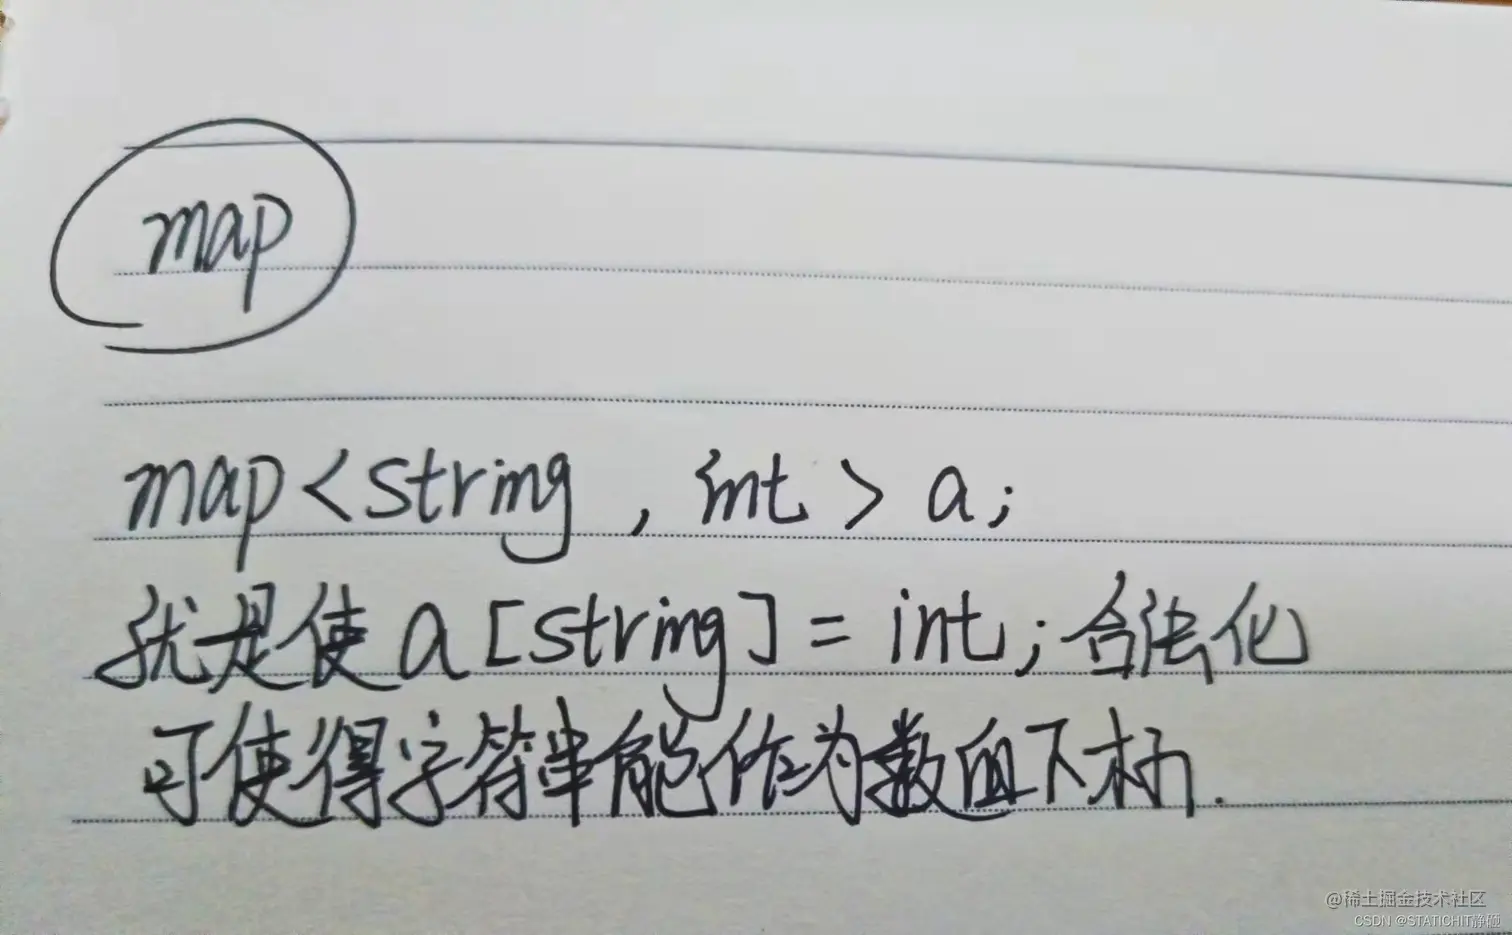 map
map<string, int> a;
就是使 a[string] = int; 合法化
可使得字符串能作为数组下标.
@稀土掘金技术社区
CSDN @STATICHIT静砸